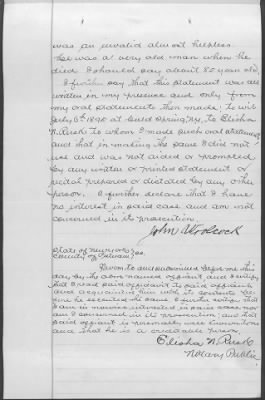 was an invalid almost helpless.
He was a very old man when he
died I should say about 85 years old.
I further say that this statement was all
written in my presence and only from
my oral statements then made; to wit
July 6th 1898 at Spring, NY, to Elisha
N. Rusk to whom I made such oral statement,
and that in making the same I did not
use and was not aided or prompted
by any written or printed statement or
recital prepared or dictated by any other
person. I further declare that I have
no interest in said case and am not
concerned in its prosecution.
John Woolcock
State of New York
County of ss.
Sworn to and subscribed before me this
day by the above named affiant and I certify
that I read said affidavit to said affiant
and acquainted him with its contents be-
fore he executed the same. I further certify that I
am in nowise interested in said case nor
am I concerned in its prosecution; and that
said affiant is personally known to me
and that he is a creditable person.
Elisha N. Rusk
Notary Public